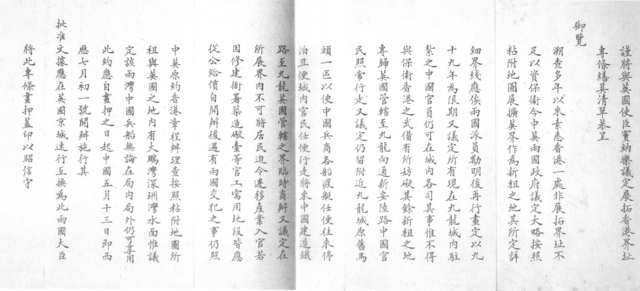 謹將與英國使臣竇納樂議定展拓香港界址
專條繕具清單恭呈
御覽
溯查多年以來素悉香港一處非展拓界址不
足以資保衛今中英兩國政府議定大略按照
粘附地圖展擴英界作為新租之地其所定詳
細界綫應俟兩國派員勘明後再行畫定以九
十九年為限期又議定所有現在九龍城內駐
紮之中國官員仍可在城內各司其事惟不得
與保衛香港之武備有所妨礙其餘新租之地
專歸英國管轄至九龍向通新安陸路中國官
民照常行走又議定仍留附近九龍城原舊馬
頭一區以便中國兵商各船渡艇任便往來停
泊且便城內官民任便行走將來中國建造鐵
路至九龍英國管轄之界臨時商辦又議定在
所展界內不可將居民迫令遷移產業入官若
因修建衙署築造礮臺等官工需用地段皆應
從公給價自開辦後遇有兩國交犯之事仍照
中英原約香港章程辦理查按照粘附地圖所
租與英國之地內有大鵬灣深洲灣水面惟議
定該兩灣中國兵船無論在局內局外仍可享用
此約應自畫押之日起中國五月十三日即西
應七月初一號開辦施行其
批准文據應在英國京城速行互換為此兩國大臣
將此專條畫押蓋印以昭信守